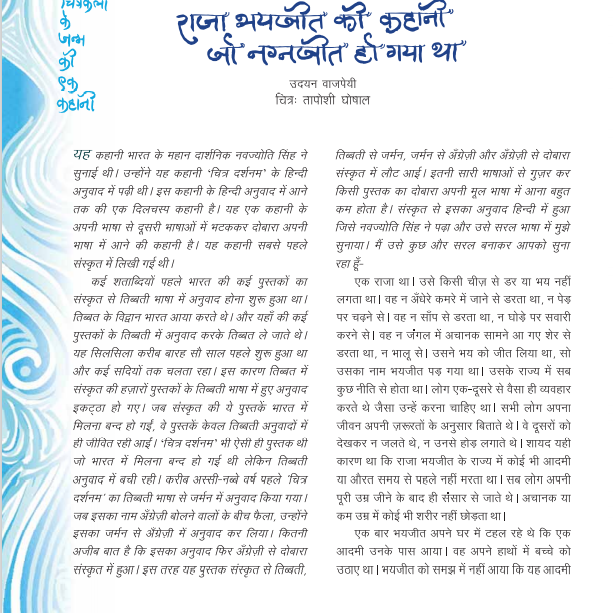 चित्रकला
के
जन्म
की
एक
कहानी
राजा भयजीत की कहानी
जो नग्नजीत हो गया था
उदयन वाजपेयी
चित्रः तापोशी घोषाल
यह कहानी भारत के महान दार्शनिक नवज्योति सिंह ने
सुनाई थी। उन्होंने यह कहानी ‘चित्र दर्शनम’ के हिन्दी
अनुवाद में पढ़ी थी। इस कहानी के हिन्दी अनुवाद में आने
तक की एक दिलचस्प कहानी है। यह एक कहानी के
अपनी भाषा से दूसरी भाषाओं में भटककर दोबारा अपनी
भाषा में आने की कहानी है। यह कहानी सबसे पहले
संस्कृत में लिखी गई थी।
कई शताब्दियों पहले भारत की कई पुस्तकों का
संस्कृत से तिब्बती भाषा में अनुवाद होना शुरू हुआ था।
तिब्बत के विद्वान भारत आया करते थे। और यहाँ की कई
पुस्तकों के तिब्बती में अनुवाद करके तिब्बत ले जाते थे।
यह सिलसिला करीब बारह सौ साल पहले शुरू हुआ था
और कई सदियों तक चलता रहा। इस कारण तिब्बत में
संस्कृत की हज़ारों पुस्तकों के तिब्बती भाषा में हुए अनुवाद
इकट्ठा हो गए। जब संस्कृत की ये पुस्तकें भारत में
मिलना बन्द हो गईं, वे पुस्तकें केवल तिब्बती अनुवादों में
ही जीवित रही आईं। ‘चित्र दर्शनम’ भी ऐसी ही पुस्तक थी
जो भारत में मिलना बन्द हो गई थी लेकिन तिब्बती
अनुवाद में बची रही। करीब अस्सी-नब्बे वर्ष पहले ‘चित्र
दर्शनम’ का तिब्बती भाषा से जर्मन में अनुवाद किया गया।
जब इसका नाम अँग्रेज़ी बोलने वालों के बीच फैला, उन्होंने
इसका जर्मन से अँग्रेज़ी में अनुवाद कर लिया। कितनी
अजीब बात है कि इसका अनुवाद फिर अँग्रेज़ी से दोबारा
संस्कृत में हुआ। इस तरह यह पुस्तक संस्कृत से तिब्बती,
तिब्बती से जर्मन, जर्मन से अँग्रेज़ी और अँग्रेज़ी से दोबारा
संस्कृत में लौट आई। इतनी सारी भाषाओं से गुज़र कर
किसी पुस्तक का दोबारा अपनी मूल भाषा में आना बहुत
कम होता है। संस्कृत से इसका अनुवाद हिन्दी में हुआ
जिसे नवज्योति सिंह ने पढ़ा और उसे सरल भाषा में मुझे
सुनाया। मैं उसे कुछ और सरल बनाकर आपको सुना
रहा हूँ-
एक राजा था। उसे किसी चीज़ से डर या भय नहीं
लगता था। वह न अँधेरे कमरे में जाने से डरता था, न पेड़
पर चढ़ने से। वह न साँप से डरता था, न घोड़े पर सवारी
करने से। वह न जंगल में अचानक सामने आ गए शेर से
डरता था, न भालू से। उसने भय को जीत लिया था, सो
उसका नाम भयजीत पड़ गया था। उसके राज्य में सब
कुछ नीति से होता था। लोग एक-दूसरे से वैसा ही व्यवहार
करते थे जैसा उन्हें करना चाहिए था। सभी लोग अपना
जीवन अपनी ज़रूरतों के अनुसार बिताते थे। वे दूसरों को
देखकर न जलते थे, न उनसे होड़ लगाते थे। शायद यही
कारण था कि राजा भयजीत के राज्य में कोई भी आदमी
या औरत समय से पहले नहीं मरता था। सब लोग अपनी
पूरी उम्र जीने के बाद ही संसार से जाते थे। अचानक या
कम उम्र में कोई भी शरीर नहीं छोड़ता था।
एक बार भयजीत अपने घर में टहल रहे थे कि एक
आदमी उनके पास आया। वह अपने हाथों में बच्चे को
उठाए था। भयजीत को समझ में नहीं आया कि यह आदमी